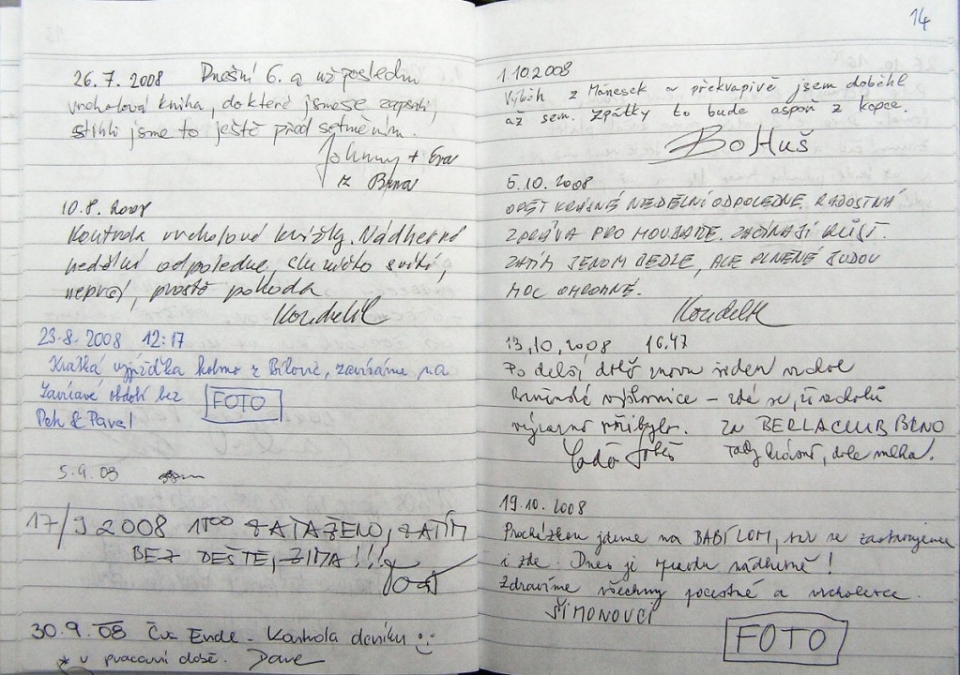 26.7. 2008 Dnešní 6. a už poslední
vrcholová kniha, do které jsme se zapsali,
stihli jsme to ještě před setměním.
Johnny + Eva
z Brna
10.8. 2008
Kontrola vrcholové knížky. Nádherné
nedělní odpoledne, sluníčko svítí,
neprší, prostě pohoda
Koudelk
23.8. 2008 12:17
Krátká vyjížďka kolmo z Bílovic, zavíráme na
období bez FOTO
Petr & Pavel
5.9.08
17/9 2008 17⁰⁰ ZATAŽENO, ZATÍM
BEZ DEŠTĚ, ZIMA !!!
30.9.08 Čs Ende - Kontrola deníku :-)
* v pracovní době. Dave
14
1.10.2008
Výběh z Mánesek a překvapivě jsem doběhl
až sem. Zpátky to bude aspoň z kopce.
BoHuš
5.10.2008
OPĚT KRÁSNÉ NEDĚLNÍ ODPOLEDNE. RADOSTNÁ
ZPRÁVA PRO HOUBAŘE. ZAČÍNAJÍ RŮST.
ZATÍM JENOM BEDLE, ALE PLNĚNÉ JSOU
MOC OHROMNÉ.
Koudelk
13,10,2008 16.47
Po delší době znovu jeden vrchol
- zdá se, že vrcholů
výrazně přibylo. Za BERLACLUB BRNO
Tady krásně, dole mlha.
19.10.2008
Procházkou jdeme na BABÍ LOM, se zastavujeme
i zde. Dnes je opravdu nádherně!
Zdravíme všechny pocestné a vrcholovce.
ŠIMONOVCI
FOTO